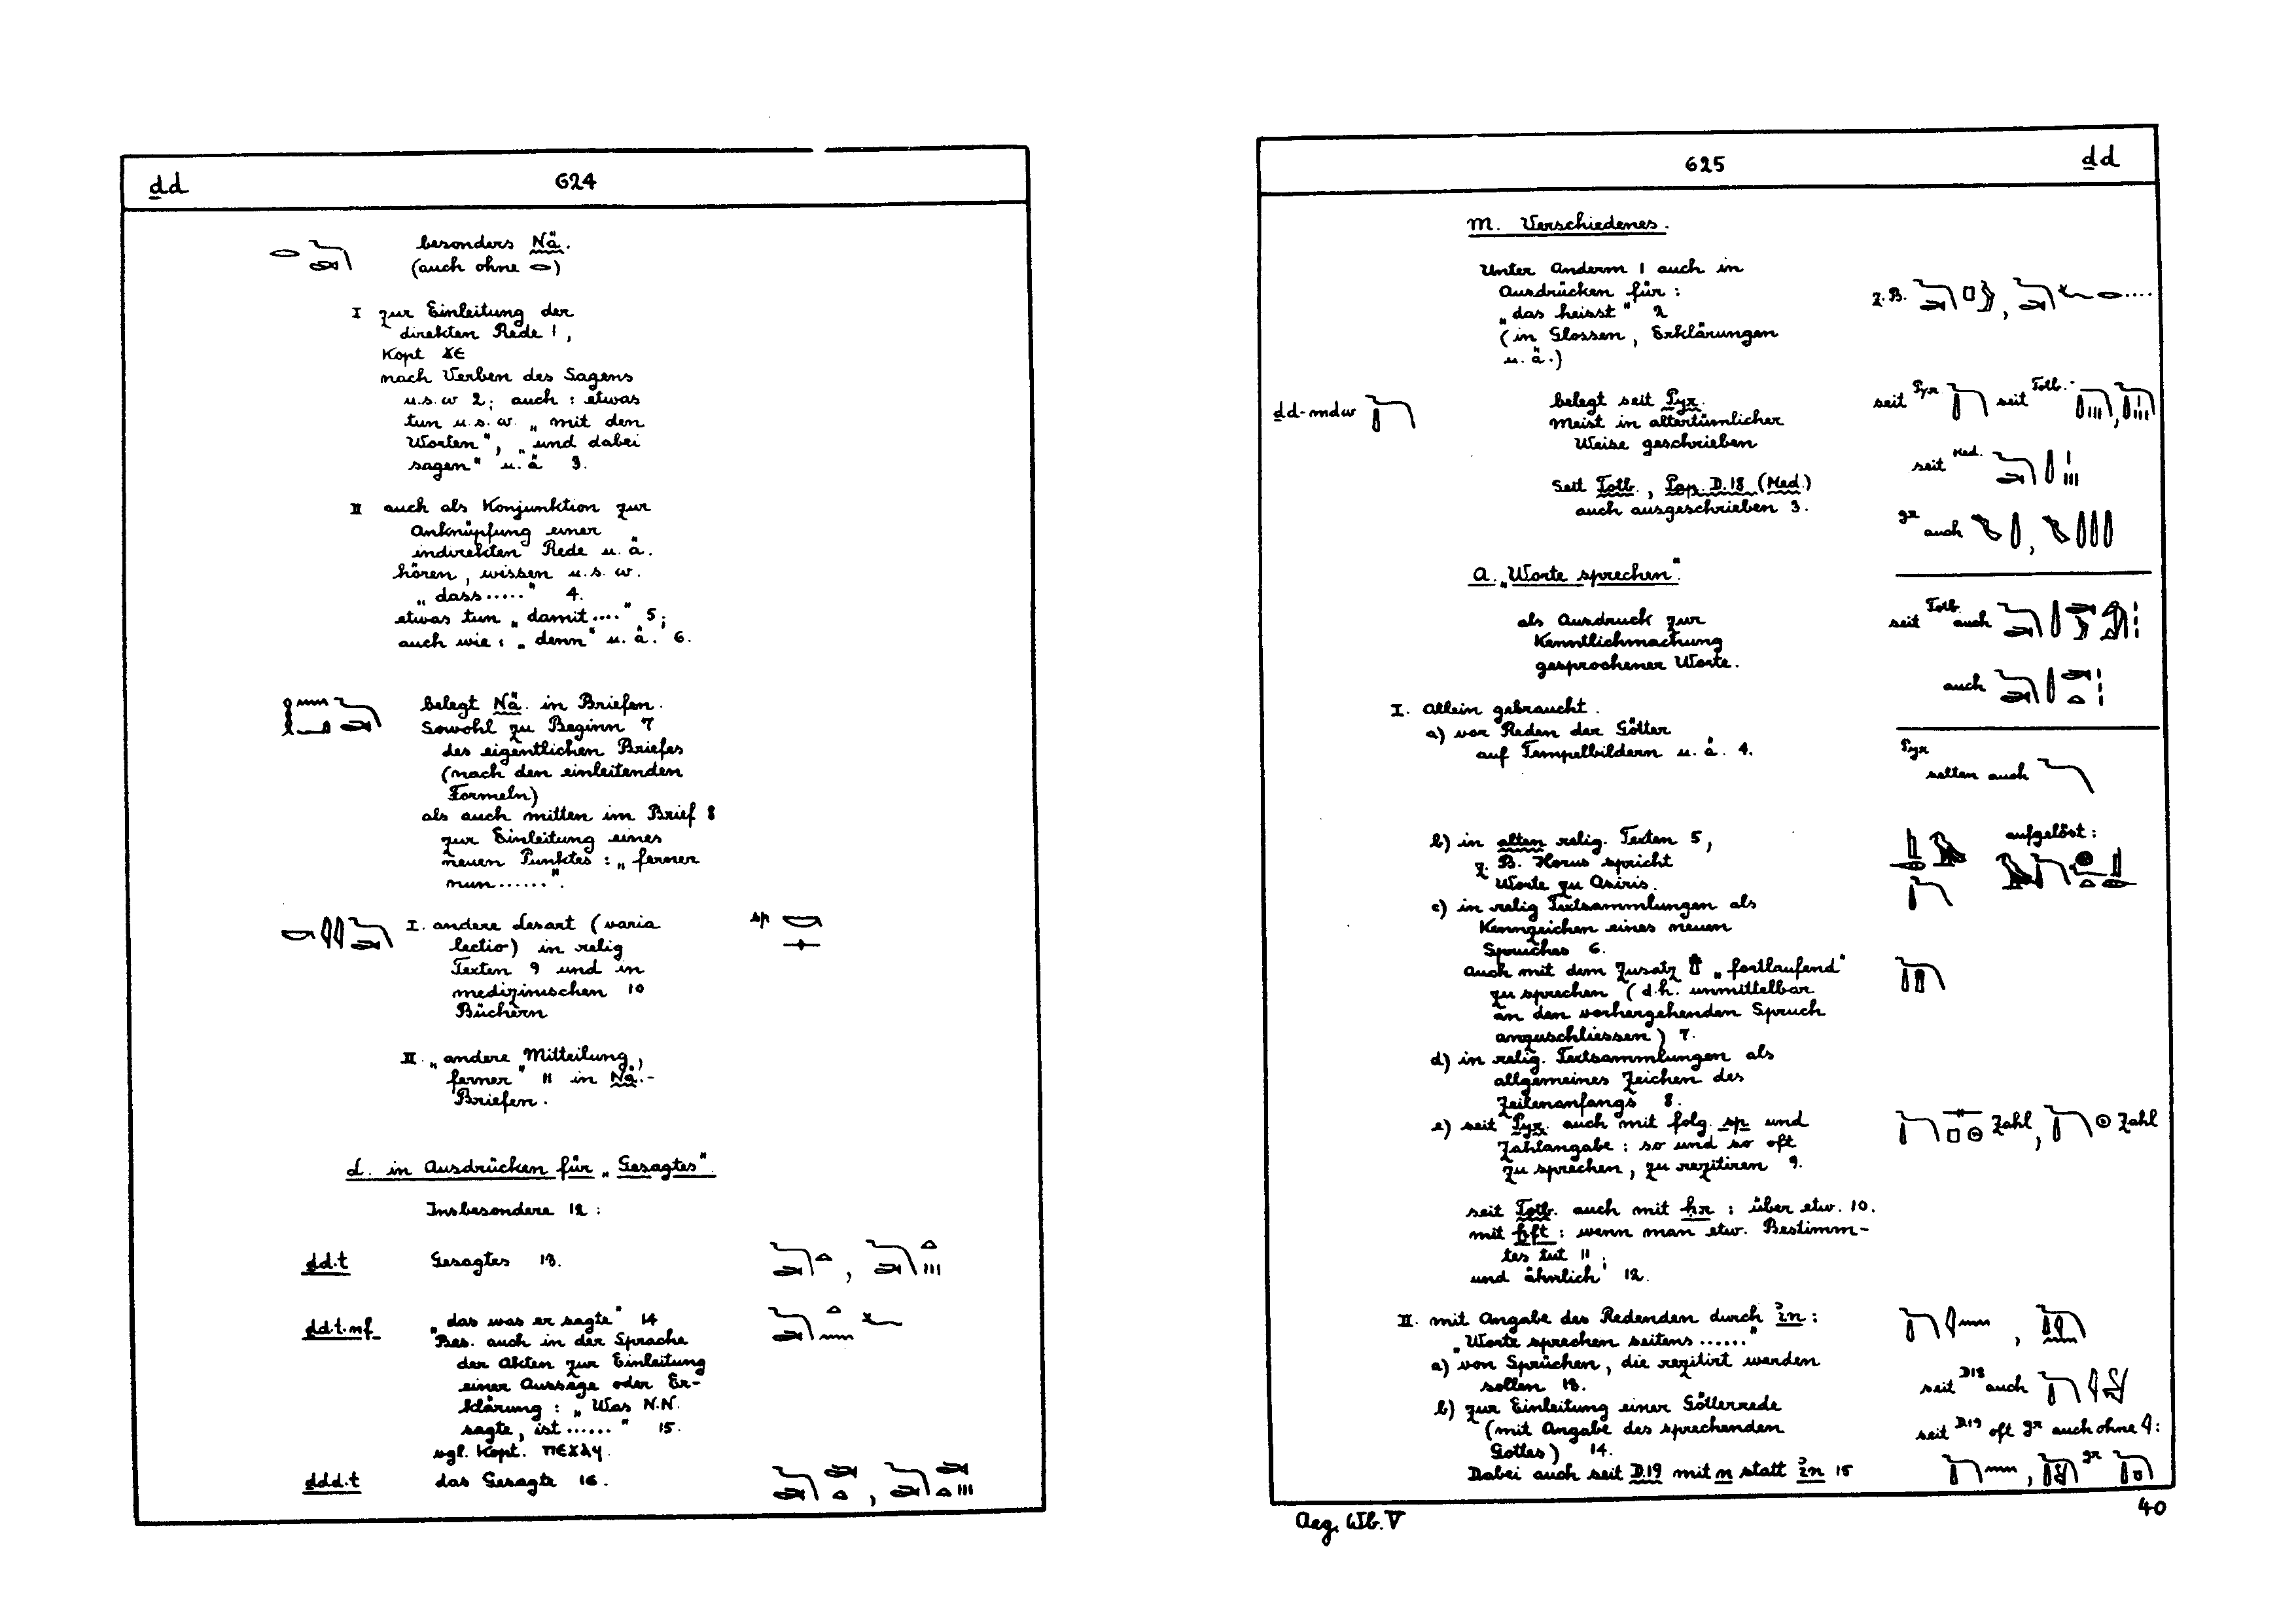 ḏd
624
besonders Nä.
(auch ohne 𓂋)
I zur Einleitung der
direkten Rede 1,
Kopt ϫⲉ
nach Verben des Sagens
u.s.w 2; auch : etwas
tun u.s.w. „mit den
Worten", „und dabei
sagen" u.ä 3.
II auch als Konjunktion zur
Anknüpfung einer
indirekten Rede u.ä.
hören, wissen u.s.w.
„dass....." 4.
etwas tun „damit...." 5;
auch wie : „denn" u.ä. 6.
belegt Nä. in Briefen.
Sowohl zu Beginn 7
des eigentlichen Briefes
(nach den einleitenden
Formeln)
als auch mitten im Brief 8
zur Einleitung eines
neuen Punktes : „ferner
nun......".
I. andere Lesart (varia
lectio) in relig
Texten 9 und in
medizinischen 10
Büchern
sp
II. „andere Mitteilung,
ferner" 11 in Nä.-
Briefen.
L. in Ausdrücken für „Gesagtes".
Insbesondere 12 :
ḏd.t Gesagtes 13.
ḏd.t.nf „das was er sagte" 14
Bes. auch in der Sprache
der Akten zur Einleitung
einer Aussage oder Er-
klärung : „Was N.N.
sagte, ist......" 15.
vgl. Kopt. ⲡⲉϫⲁϥ.
ḏdd.t das Gesagte 16.
625
ḏd
M. Verschiedenes.
Unter Anderm 1 auch in
Ausdrücken für :
„das heisst" 2
(in Glossen, Erklärungen
u.ä.)
z.B.
ḏd-mdw
belegt seit Pyr.
Meist in altertümlicher
Weise geschrieben
seit Pyr seit Totb.
Seit Totb., Pap. D.18 (Med.)
auch ausgeschrieben 3.
seit Med.
gr auch
A. „Worte sprechen".
als Ausdruck zur
Kenntlichmachung
gesprochener Worte.
seit Totb. auch
auch
I. Allein gebraucht.
a) vor Reden der Götter
auf Tempelbildern u.ä. 4.
Pyr
selten auch
b) in alten relig. Texten 5,
z.B. Horus spricht
Worte zu Osiris.
aufgelöst :
c) in relig Textsammlungen als
Kennzeichen eines neuen
Spruches 6.
Auch mit dem Zusatz „fortlaufend"
zu sprechen (d.h. unmittelbar
an den vorhergehenden Spruch
anzuschliessen) 7.
d) in relig. Textsammlungen als
allgemeines Zeichen des
Zeilenanfangs 8.
e) seit Pyr. auch mit folg. sp und
Zahlangabe : so und so oft
zu sprechen, zu rezitiren 9.
Zahl, Zahl
seit Totb. auch mit ḥr : über etw. 10.
mit ḫft : wenn man etw. Bestimm-
tes tut 11;
und ähnlich 12.
II. mit Angabe des Redenden durch ı͗n :
„Worte sprechen seitens......"
a) von Sprüchen, die rezitirt werden
sollen 13.
seit D18 auch
b) zur Einleitung einer Götterrede
(mit Angabe des sprechenden
Gottes) 14.
seit D19 oft gr auch ohne 𓇋:
Dabei auch seit D.19 mit n statt ı͗n 15
gr
Aeg. Wb. V
40